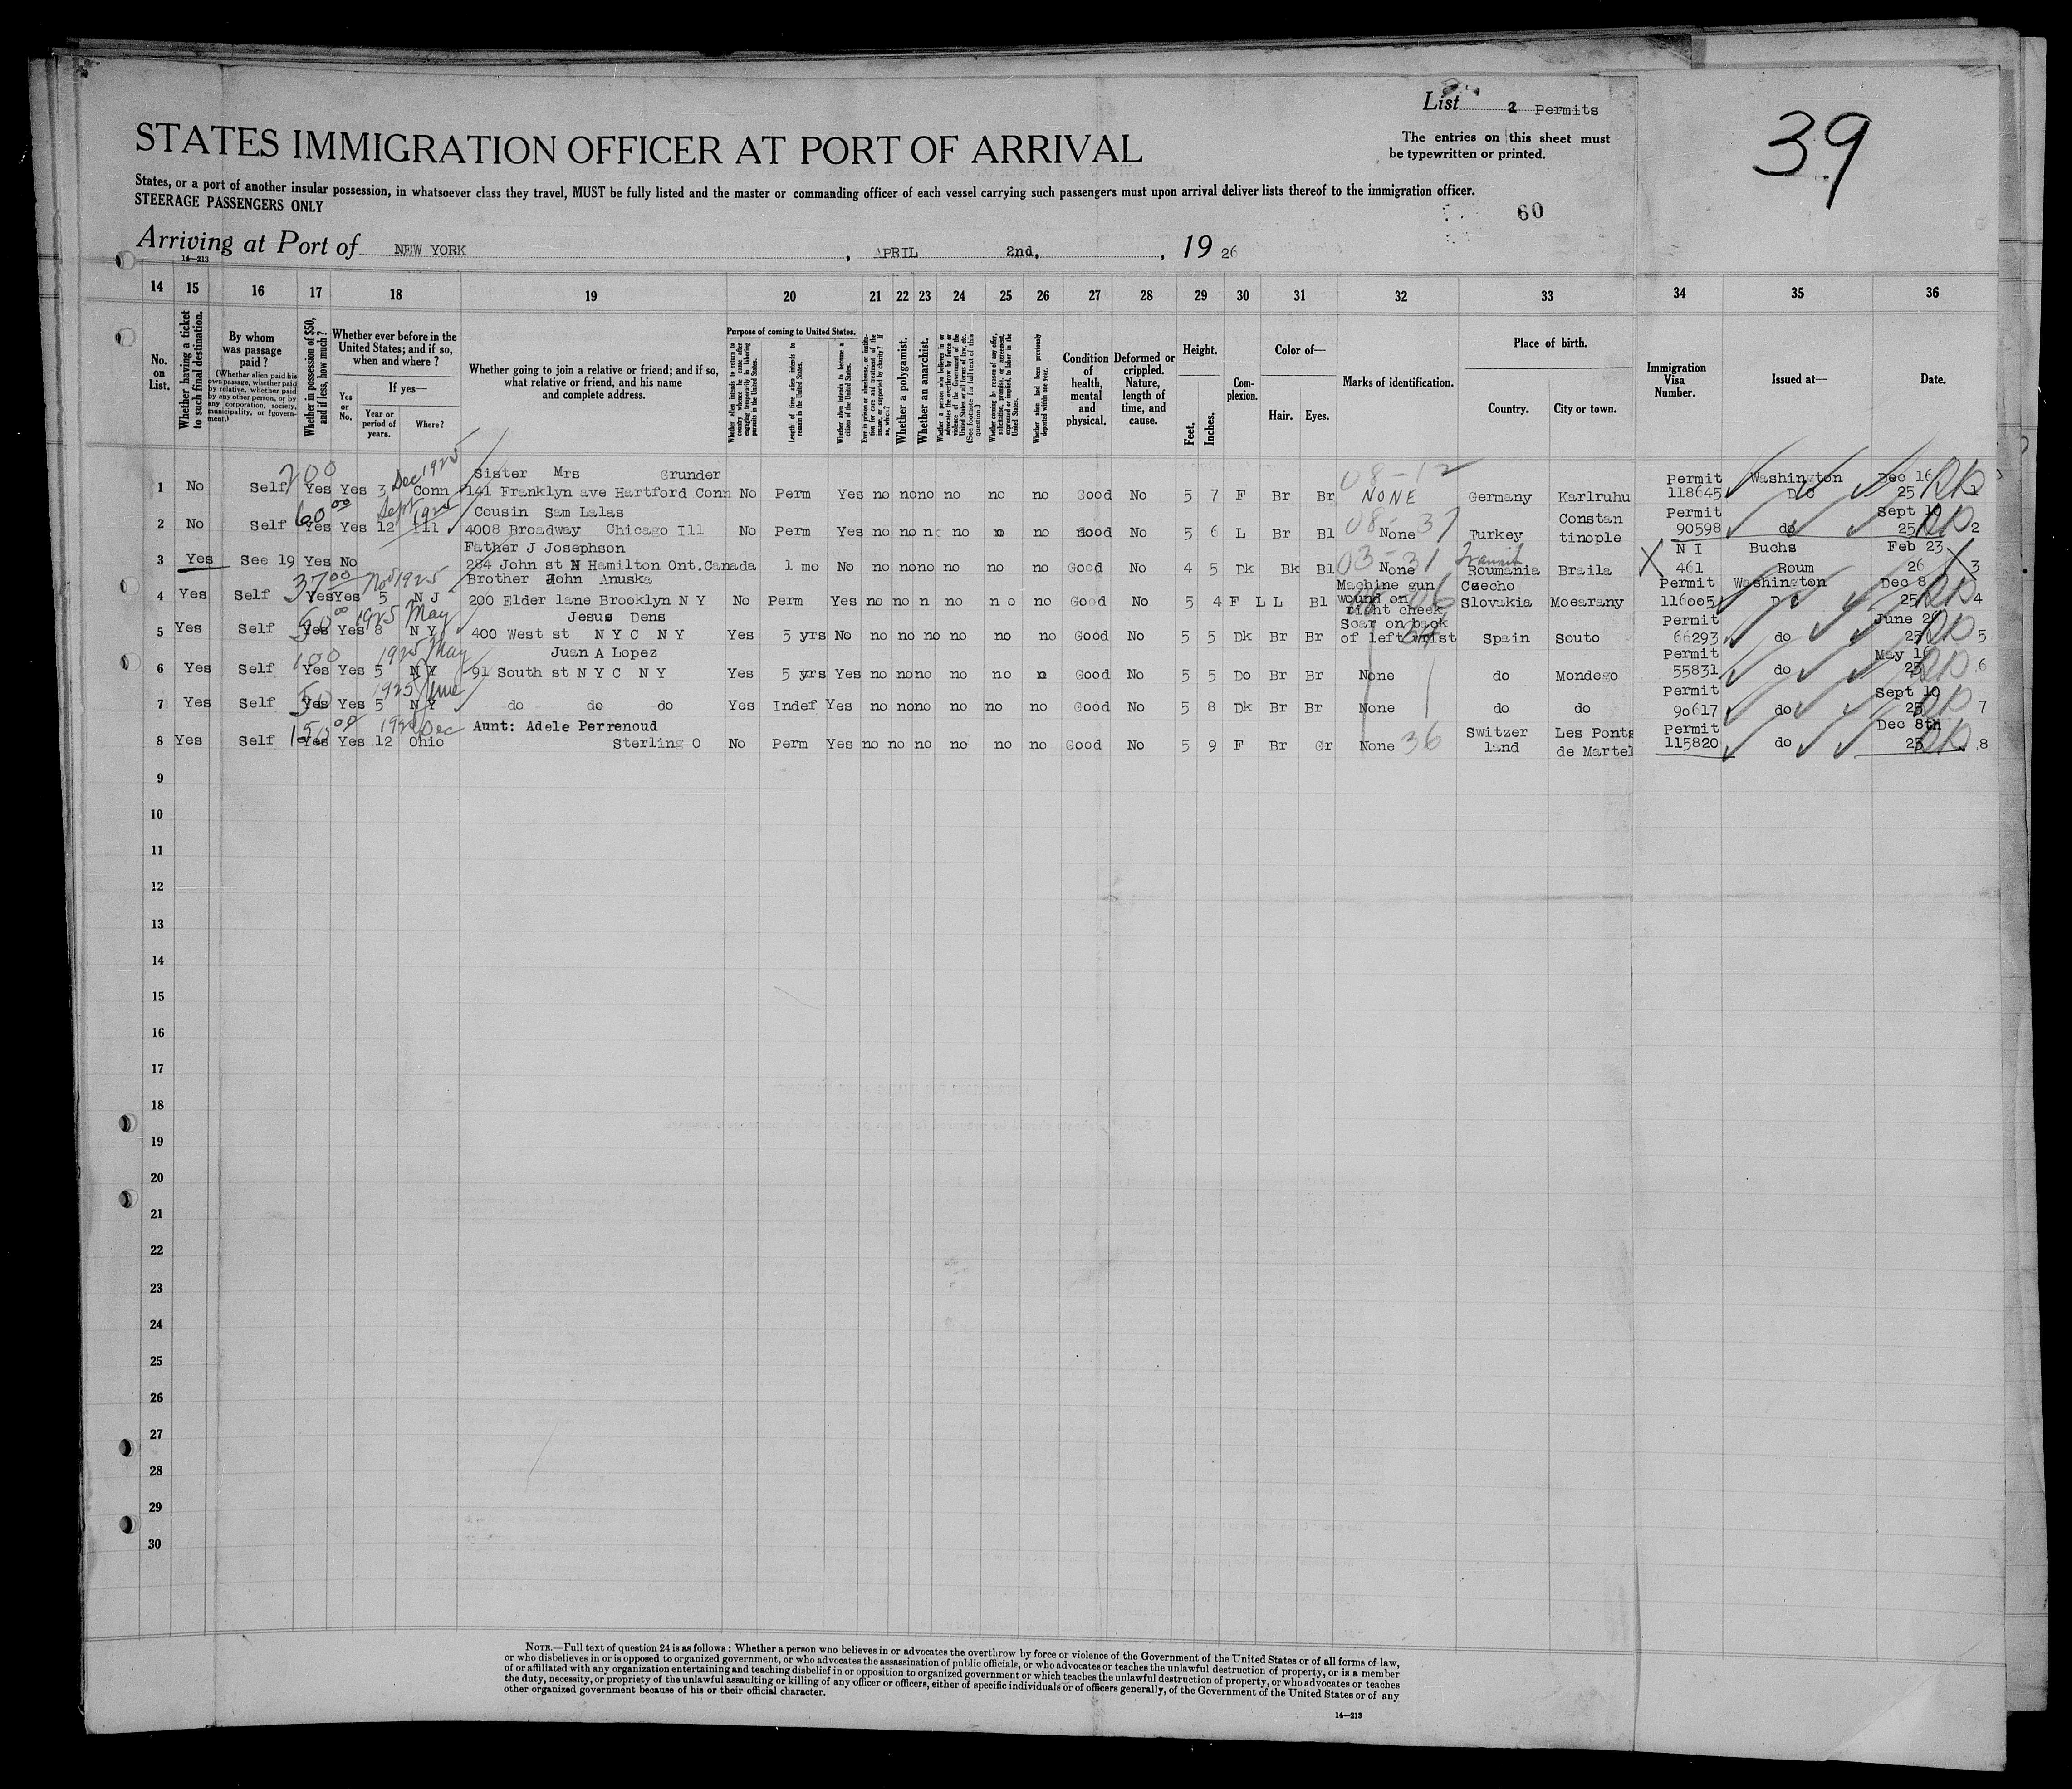 List 2 Permits
39
The entries on this sheet must
be typewritten or printed.
STATES IMMIGRATION OFFICER AT PORT OF ARRIVAL
States, or a port of another insular possession, in whatsoever class they travel, MUST be fully listed and the master or commanding officer of each vessel carrying such passengers must upon arrival deliver lists thereof to the immigration officer.
STEERAGE PASSENGERS ONLY
60
Arriving at Port of NEW YORK, APRIL 2nd., 19 26
14—213
14 15 16 17 18 19 20 21 22 23 24 25 26 27 28 29 30 31 32 33 34 35 36
No. on List.
Whether having a ticket to such final destination.
By whom was passage paid?
(Whether alien paid his own passage, whether paid by relative, whether paid by any other person, or by any corporation, society, municipality, or government.)
Whether in possession of $50, and if less, how much?
Whether ever before in the United States; and if so, when and where?
Yes or No.
If yes—
Year or period of years.
Where?
Whether going to join a relative or friend; and if so, what relative or friend, and his name and complete address.
Purpose of coming to United States.
Whether alien intends to return to country whence he came after engaging temporarily in laboring pursuits in the United States.
Length of time alien intends to remain in the United States.
Whether alien intends to become a citizen of the United States.
Ever in prison or almshouse, or institution for care and treatment of the insane, or supported by charity? If so, which?
Whether a polygamist.
Whether an anarchist.
Whether a person who believes in or advocates the overthrow by force or violence of the Government of the United States or all forms of law, etc. (See footnote for full text of this question.)
Whether coming by reason of any offer, solicitation, promise, or agreement, expressed or implied, to labor in the United States.
Whether alien had been previously deported within one year.
Condition of health, mental and physical.
Deformed or crippled. Nature, length of time, and cause.
Height.
Feet. Inches.
Complexion.
Color of—
Hair. Eyes.
Marks of identification.
Place of birth.
Country. City or town.
Immigration Visa Number.
Issued at—
Date.
200 Dec 1925 Sister Mrs Grunder 08-12 Permit Washington Dec 16
1 No Self Yes Yes 3 Conn 141 Franklyn ave Hartford Conn No Perm Yes no no no no no no Good No 5 7 F Br Br NONE Germany Karlruhu 118645 D C 25 1
60 00 Sept 1925 Cousin Sam Lalas 08-37 Constan Permit Sept 10
2 No Self Yes Yes 12 Ill 4008 Broadway Chicago Ill No Perm Yes no no no no no no Good No 5 6 L Br Bl None Turkey tinople 90598 do 25 2
Father J Josephson 03-31 Transit N I Buchs Feb 23
3 Yes See 19 Yes No 284 John st N Hamilton Ont.Canada 1 mo No no no no no no no Good No 4 5 Dk Bk Bl None Roumania Braila 461 Roum 26 3
37 00 Nov 1925 Brother John Anuska Machine gun Czecho Permit Washington Dec 8
4 Yes Self Yes Yes 5 N J 200 Elder lane Brooklyn N Y No Perm Yes no no n no no no Good No 5 4 F L L Bl wound on right cheek Slovakia Moearany 116005 D C 25 4
50 00 1925 May Jesus Dens Scar on back Permit June 20
5 Yes Self Yes Yes 8 N Y 400 West st N Y C N Y Yes 5 yrs No no no no no no no Good No 5 5 Dk Br Br of left wrist Spain Souto 66293 do 25 5
100 1925 May Juan A Lopez Permit May 16
6 Yes Self Yes Yes 5 N Y 91 South st N Y C N Y Yes 5 yrs Yes no no no no no n Good No 5 5 Do Br Br None do Mondego 55831 do 25 6
50 1925 June Permit Sept 10
7 Yes Self Yes Yes 5 N Y do do do Yes Indef Yes no no no no no no Good No 5 8 Dk Br Br None do do 90617 do 25 7
150 00 Dec Aunt: Adele Perrenoud 36 Switzer Les Ponts Permit Dec 8th
8 Yes Self Yes Yes 12 Ohio Sterling O No Perm Yes no no no no no no Good No 5 9 F Br Gr None land de Martel 115820 do 25 8
9
10
11
12
13
14
15
16
17
18
19
20
21
22
23
24
25
26
27
28
29
30
NOTE.—Full text of question 24 is as follows: Whether a person who believes in or advocates the overthrow by force or violence of the Government of the United States or of all forms of law,
or who disbelieves in or is opposed to organized government, or who advocates the assassination of public officials, or who advocates or teaches the unlawful destruction of property, or is a member
of or affiliated with any organization entertaining and teaching disbelief in or opposition to organized government or which teaches the unlawful destruction of property, or who advocates or teaches
the duty, necessity, or propriety of the unlawful assaulting or killing of any officer or officers, either of specific individuals or of officers generally, of the Government of the United States or of any
other organized government because of his or their official character.
14—213